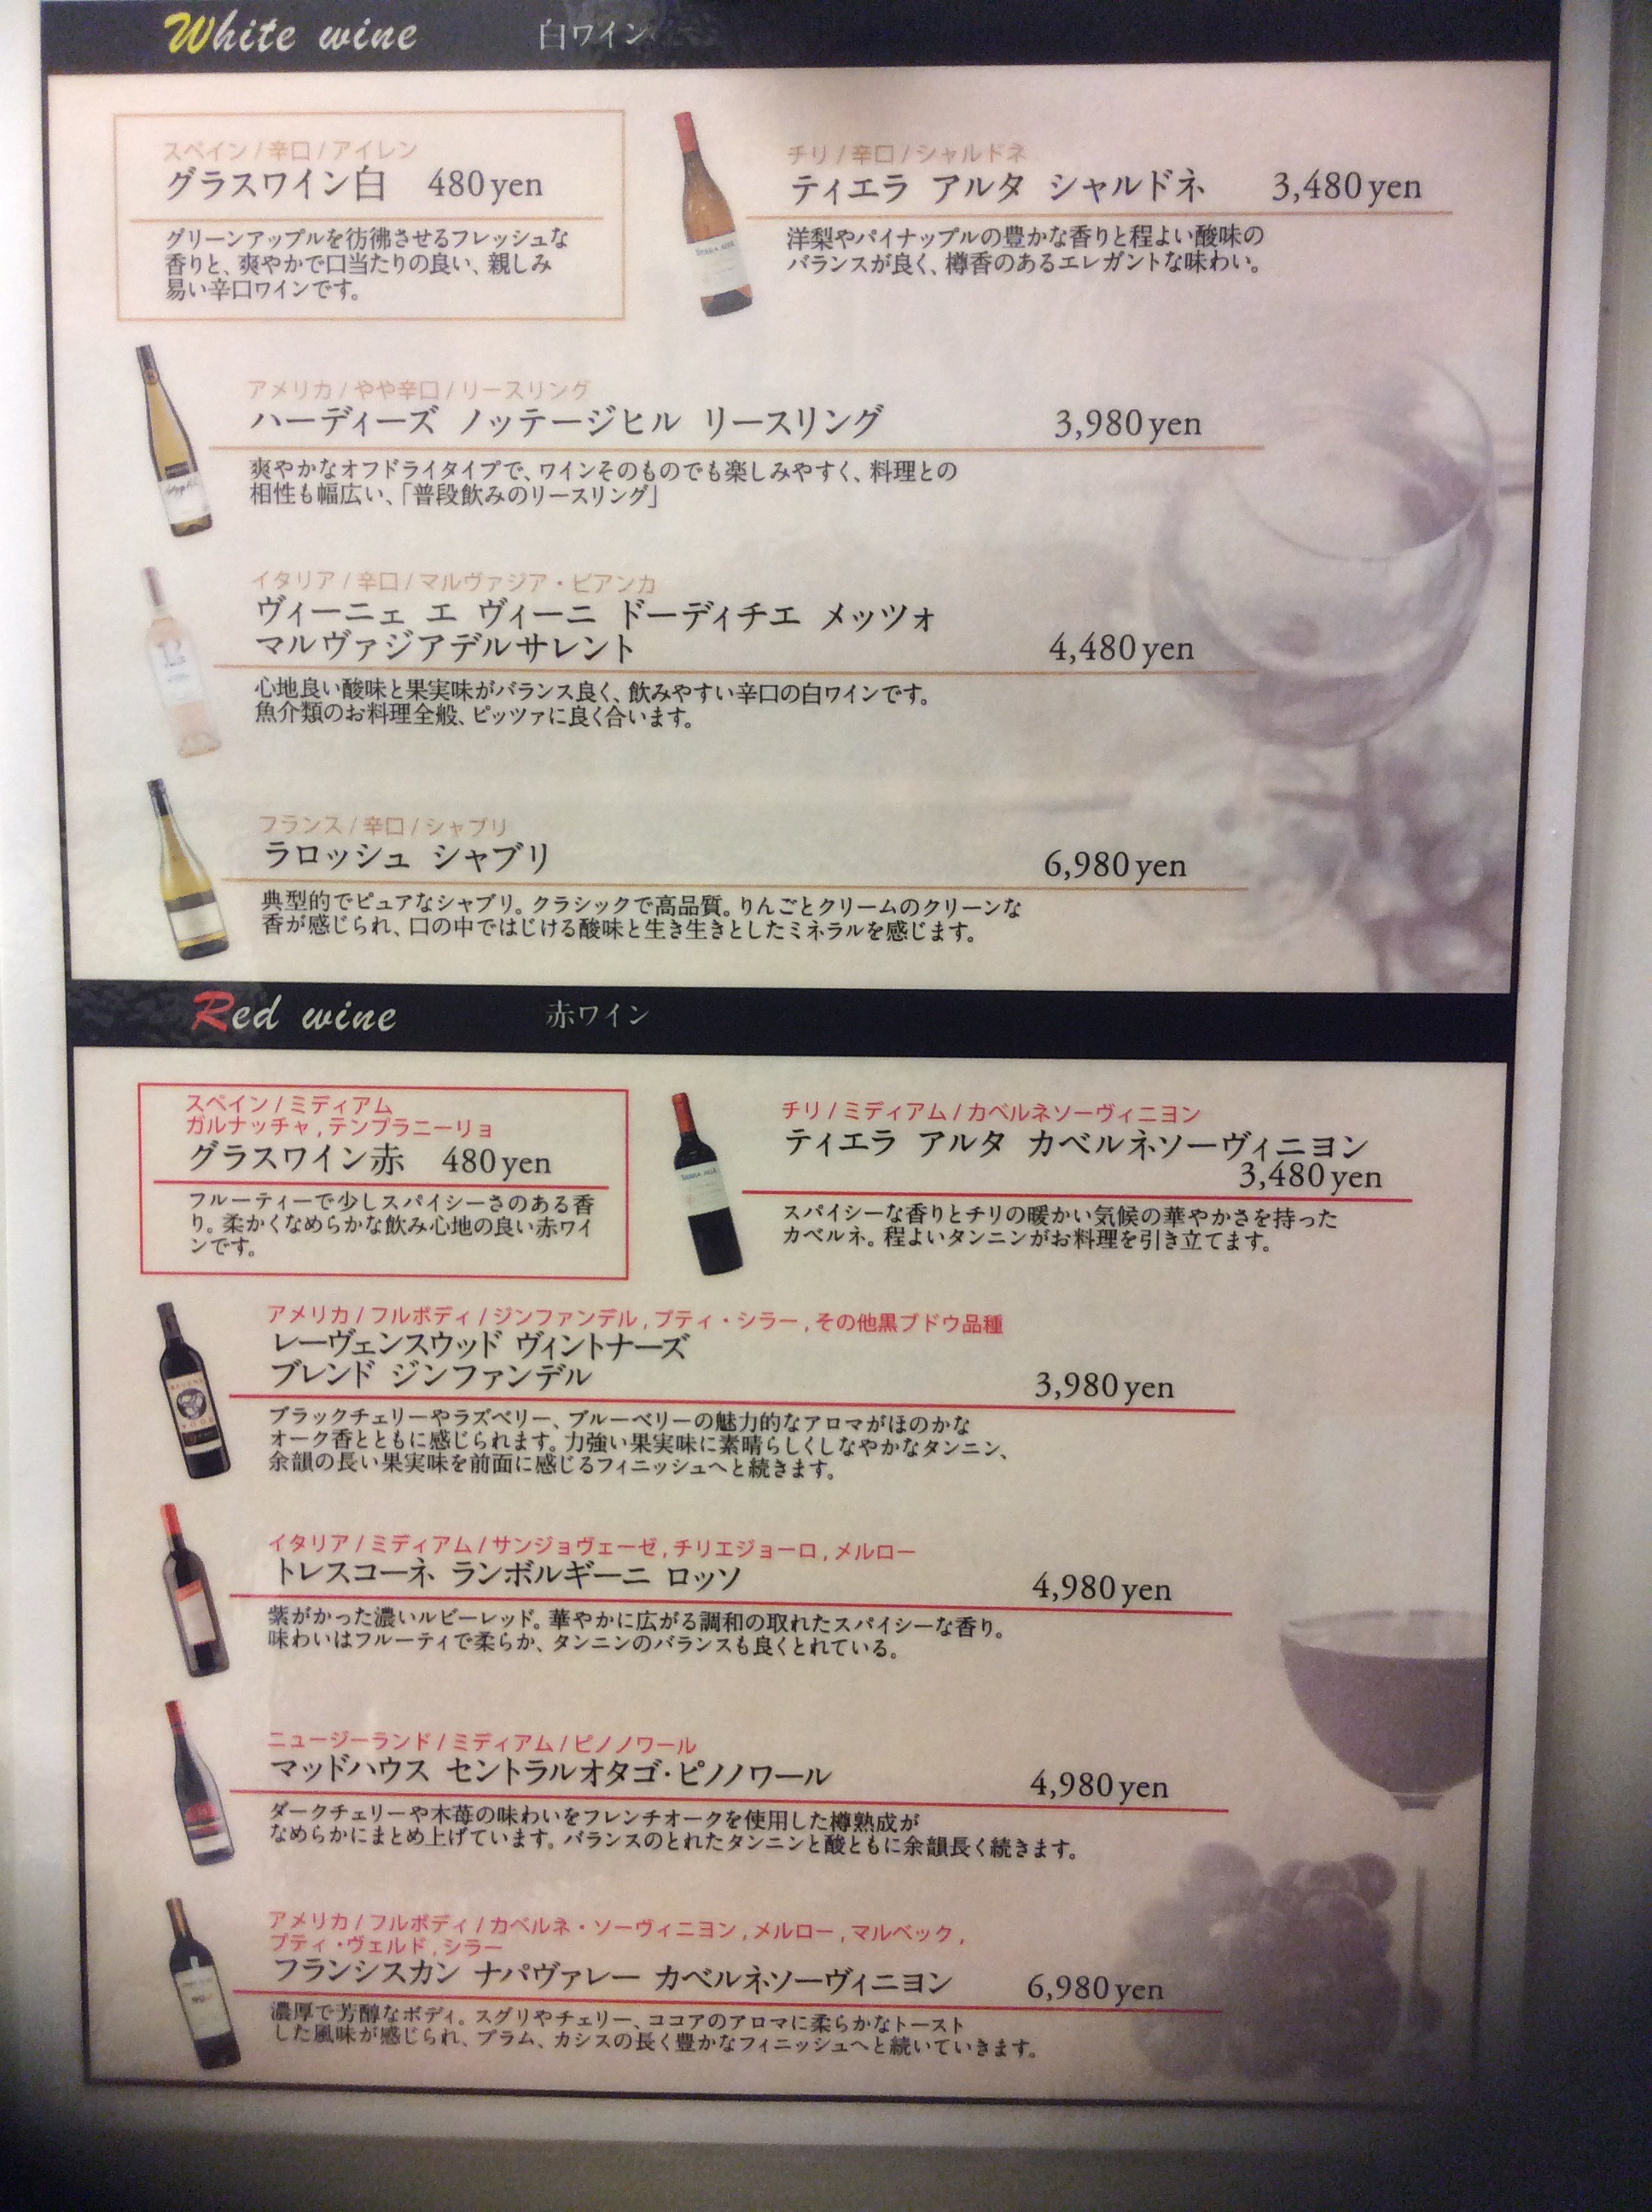 White wine 白ワイン
スペイン / 辛口 / アイレン
グラスワイン白 480yen
グリーンアップルを彷彿させるフレッシュな
香りと、爽やかで口当たりの良い、親しみ
易い辛口ワインです。
チリ / 辛口 / シャルドネ
ティエラ アルタ シャルドネ 3,480yen
洋梨やパイナップルの豊かな香りと程よい酸味の
バランスが良く、樽香のあるエレガントな味わい。
アメリカ / やや辛口 / リースリング
ハーディーズ ノッテージヒル リースリング 3,980yen
爽やかなオフドライタイプで、ワインそのものでも楽しみやすく、料理との
相性も幅広い、「普段飲みのリースリング」
イタリア / 辛口 / マルヴァジア・ビアンカ
ヴィーニェ エ ヴィーニ ドーディチエ メッツォ
マルヴァジアデルサレント 4,480yen
心地良い酸味と果実味がバランス良く、飲みやすい辛口の白ワインです。
魚介類のお料理全般、ピッツァに良く合います。
フランス / 辛口 / シャブリ
ラロッシュ シャブリ 6,980yen
典型的でピュアなシャブリ。クラシックで高品質。りんごとクリームのクリーンな
香が感じられ、口の中ではじける酸味と生き生きとしたミネラルを感じます。
Red wine 赤ワイン
スペイン / ミディアム
ガルナッチャ , テンプラニーリョ
グラスワイン赤 480yen
フルーティーで少しスパイシーさのある香
り。柔かくなめらかな飲み心地の良い赤ワイ
ンです。
チリ / ミディアム / カベルネソーヴィニヨン
ティエラ アルタ カベルネソーヴィニヨン
3,480yen
スパイシーな香りとチリの暖かい気候の華やかさを持った
カベルネ。程よいタンニンがお料理を引き立てます。
アメリカ / フルボディ / ジンファンデル , プティ・シラー , その他黒ブドウ品種
レーヴェンスウッド ヴィントナーズ
ブレンド ジンファンデル 3,980yen
ブラックチェリーやラズベリー、ブルーベリーの魅力的なアロマがほのかな
オーク香とともに感じられます。力強い果実味に素晴らしくしなやかなタンニン、
余韻の長い果実味を前面に感じるフィニッシュへと続きます。
イタリア / ミディアム / サンジョヴェーゼ , チリエジョーロ , メルロー
トレスコーネ ランボルギーニ ロッソ 4,980yen
紫がかった濃いルビーレッド。華やかに広がる調和の取れたスパイシーな香り。
味わいはフルーティで柔らか、タンニンのバランスも良くとれている。
ニュージーランド / ミディアム / ピノノワール
マッドハウス セントラルオタゴ・ピノノワール 4,980yen
ダークチェリーや木苺の味わいをフレンチオークを使用した樽熟成が
なめらかにまとめ上げています。バランスのとれたタンニンと酸ともに余韻長く続きます。
アメリカ / フルボディ / カベルネ・ソーヴィニヨン , メルロー , マルベック ,
プティ・ヴェルド , シラー
フランシスカン ナパヴァレー カベルネソーヴィニヨン 6,980yen
濃厚で芳醇なボディ。スグリやチェリー、ココアのアロマに柔らかなトースト
した風味が感じられ、プラム、カシスの長く豊かなフィニッシュへと続いていきます。